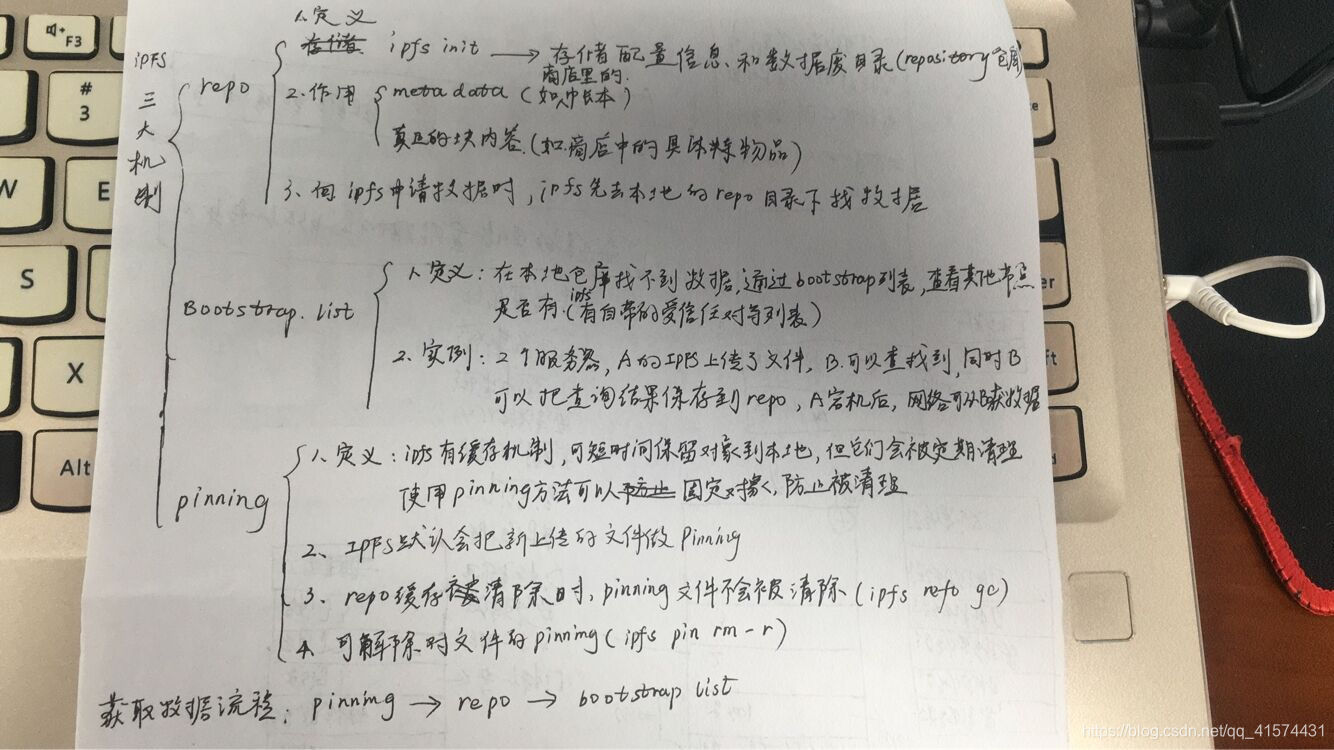 IPFS三大机制
repo
1、定义
ipfs init → 存储配置信息、和数据库目录(repository仓库)
商店里的:
2.作用 metadata (如帐本)
真正的块内容.(如商店中的具体物品)
3、向ipfs申请数据时,ipfs先去本地的repo目录下找数据
Bootstrap.list
1、定义:在本地仓库找不到数据,通过bootstrap列表,查看其他节点
是否有.(ipfs有自带的受信任对等列表)
2、实例:2个服务器,A的IPFS上传了文件,B可以查找到,同时B
可以把查询结果保存到repo,A宕机后,网络可从B获数据
pinning
1、定义:ipfs有缓存机制,可短时间保留对象到本地,但它们会被定期清理
使用pinning方法可以固定对像,防止被清理
2、IPFS默认会把新上传的文件做Pinning
3、repo缓存被清除时,pinning文件不会被清除(ipfs repo gc)
4、可解除对文件的pinning(ipfs pin rm -r)
获取数据流程:pinning → repo → bootstrap list
F3
#
3
W
E
S
X
Alt
https://blog.csdn.net/qq_41574431